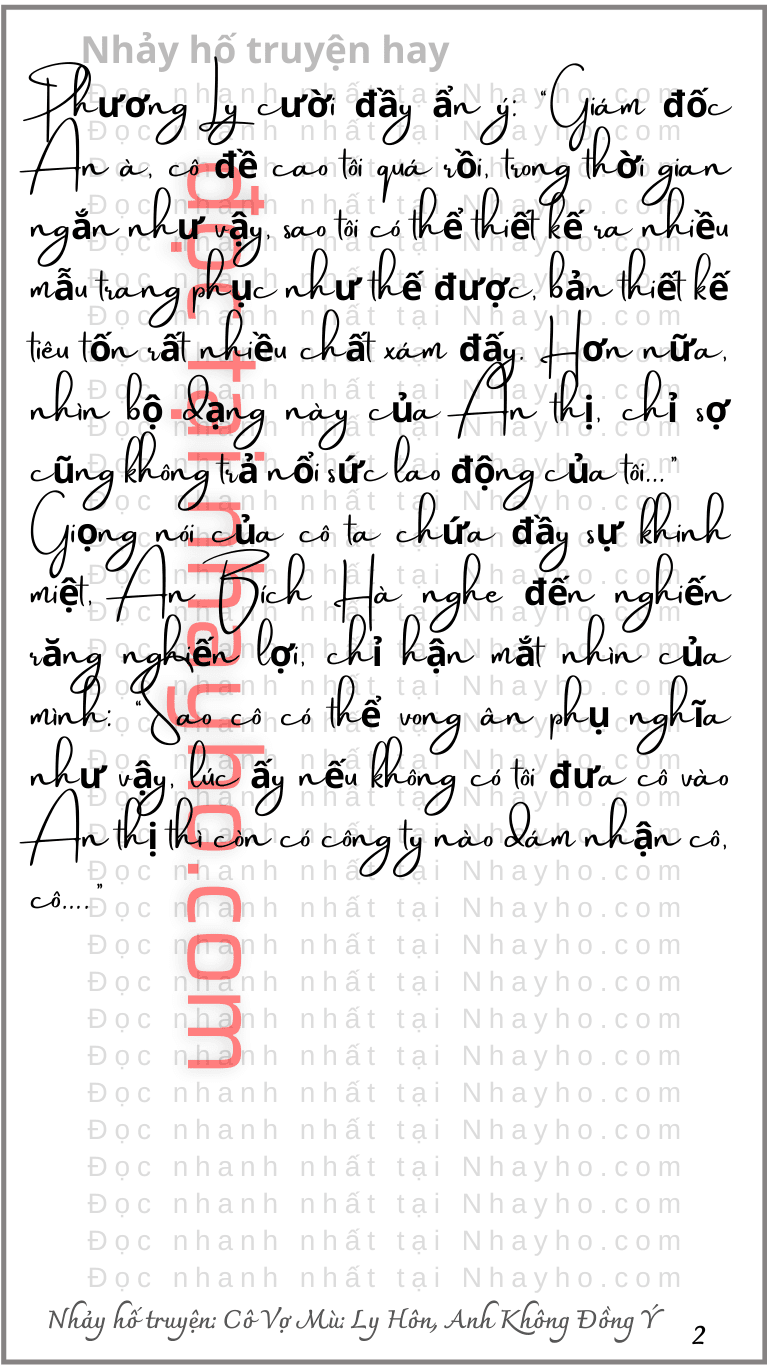 Nhảy hố truyện hay
Phương Ly cười đầy ẩn ý: “Giám đốc
An à, cô đề cao tôi quá rồi, trong thời gian
ngắn như vậy, sao tôi có thể thiết kế ra nhiều
mẫu trang phục như thế được, bản thiết kế
tiêu tốn rất nhiều chất xám đấy. Hơn nữa,
nhìn bộ dạng này của An thị, chỉ sợ
cũng không trả nổi sức lao động của tôi...”
Giọng nói của cô ta chứa đầy sự khinh
miệt, An Bích Hà nghe đến nghiến
răng nghiến lợi, chỉ hận mắt nhìn của
mình: “Sao cô có thể vong ân phụ nghĩa
như vậy, lúc ấy nếu không có tôi đưa cô vào
An thị thì còn có công ty nào dám nhận cô,
cô....”
đọc tại nhayho.com
Đọc nhanh nhất tại Nhayho.com
Đọc nhanh nhất tại Nhayho.com
Đọc nhanh nhất tại Nhayho.com
Đọc nhanh nhất tại Nhayho.com
Đọc nhanh nhất tại Nhayho.com
Đọc nhanh nhất tại Nhayho.com
Đọc nhanh nhất tại Nhayho.com
Đọc nhanh nhất tại Nhayho.com
Đọc nhanh nhất tại Nhayho.com
Đọc nhanh nhất tại Nhayho.com
Đọc nhanh nhất tại Nhayho.com
Đọc nhanh nhất tại Nhayho.com
Nhảy hố truyện: Cô Vợ Mù: Ly Hôn, Anh Không Đồng Ý
2